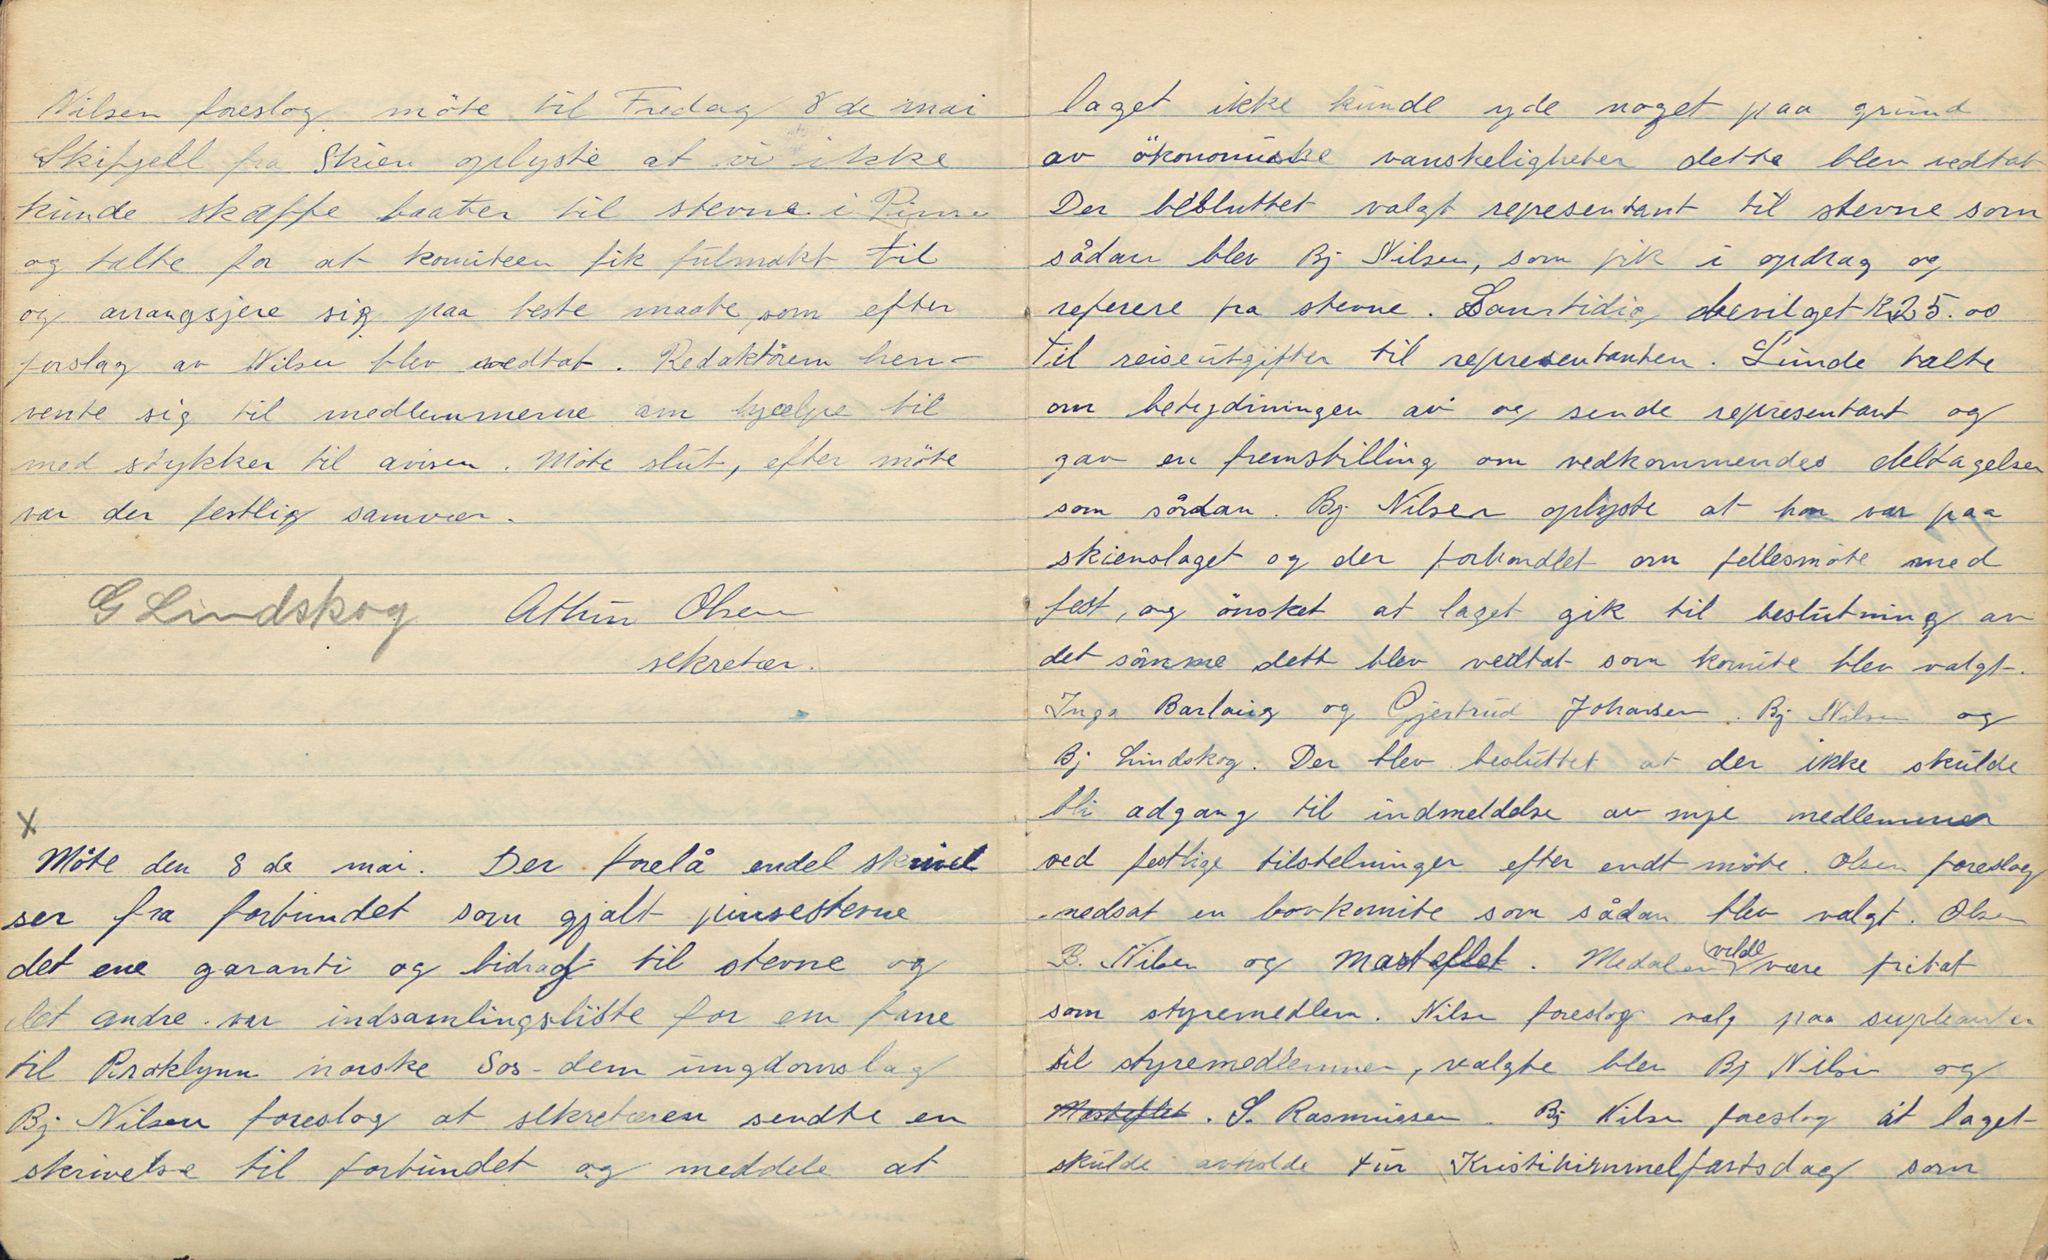 Nilsen foreslog möte til Fredag 8 de mai
Skifjell fra Skien oplyste at vi ikke
kunde skaffe baater til stevne i
og talte for at komiteen fik fulmakt til
og arrangsjere sig paa beste maate som efter
forslag av Nilsen blev vedtat. Redaktören hen-
vente sig til medlemmerne om hjælpe til
med stykker til avisen. Möte slut, efter möte
var der festlig samvær.
G Lindskog Athur Olsen
sekretær.
X
Möte den 8 de mai. Der forelå endel skrivel
ser fra forbundet som gjalt pinsestevne
det ene garanti og bidrag til stevne og
det andre var indsamlingsliste for en fane
til Broklynn norske Sos-dem ungdomslag
Bj Nilsen foreslog at sekretæren sendte en
skrivelse til forbundet og meddele at
laget ikke kunde yde noget paa grund
av ökonomiske vanskeligheter dette blev vedtat
Der besluttet valgt representant til stevne som
sådan blev Bj Nilsen, som fik i opdrag og
referere fra stevne. Samtidig bevilget K 25.00
til reiseutgifter til representanten. Lunde talte
om betydningen av og sende representant og
gav en fremstilling om vedkommendes deltagelser
som sådan. Bj Nilsen oplyste at han var paa
skienslaget og der forhandlet om fellesmöte med
fest, og önsket at laget gik til beslutning av
det samme dett blev vedtat som komite blev valgt.
Inga Barlaug og Gjertrud Johansen. Bj Nilsen og
Bj Lindskog. Der blev besluttet at der ikke skulde
bli adgang til indmeldelse av nye medlemmer
ved festlige tilstelninger efter endt möte. Olsen foreslog
nedsat en lovkomite som sådan blev valgt. Olsen
B. Nilsen og Masteflet. Medalen vilde være fritat
som styremedlem. Nilsen foreslog valg paa supleanter
til styremedlemmer, valgte blev Bj Nilsen og
Masteflet. S. Rasmussen. Bj Nilsen foreslog at laget
skulde avholde tur Kristihimmelfartsdag som